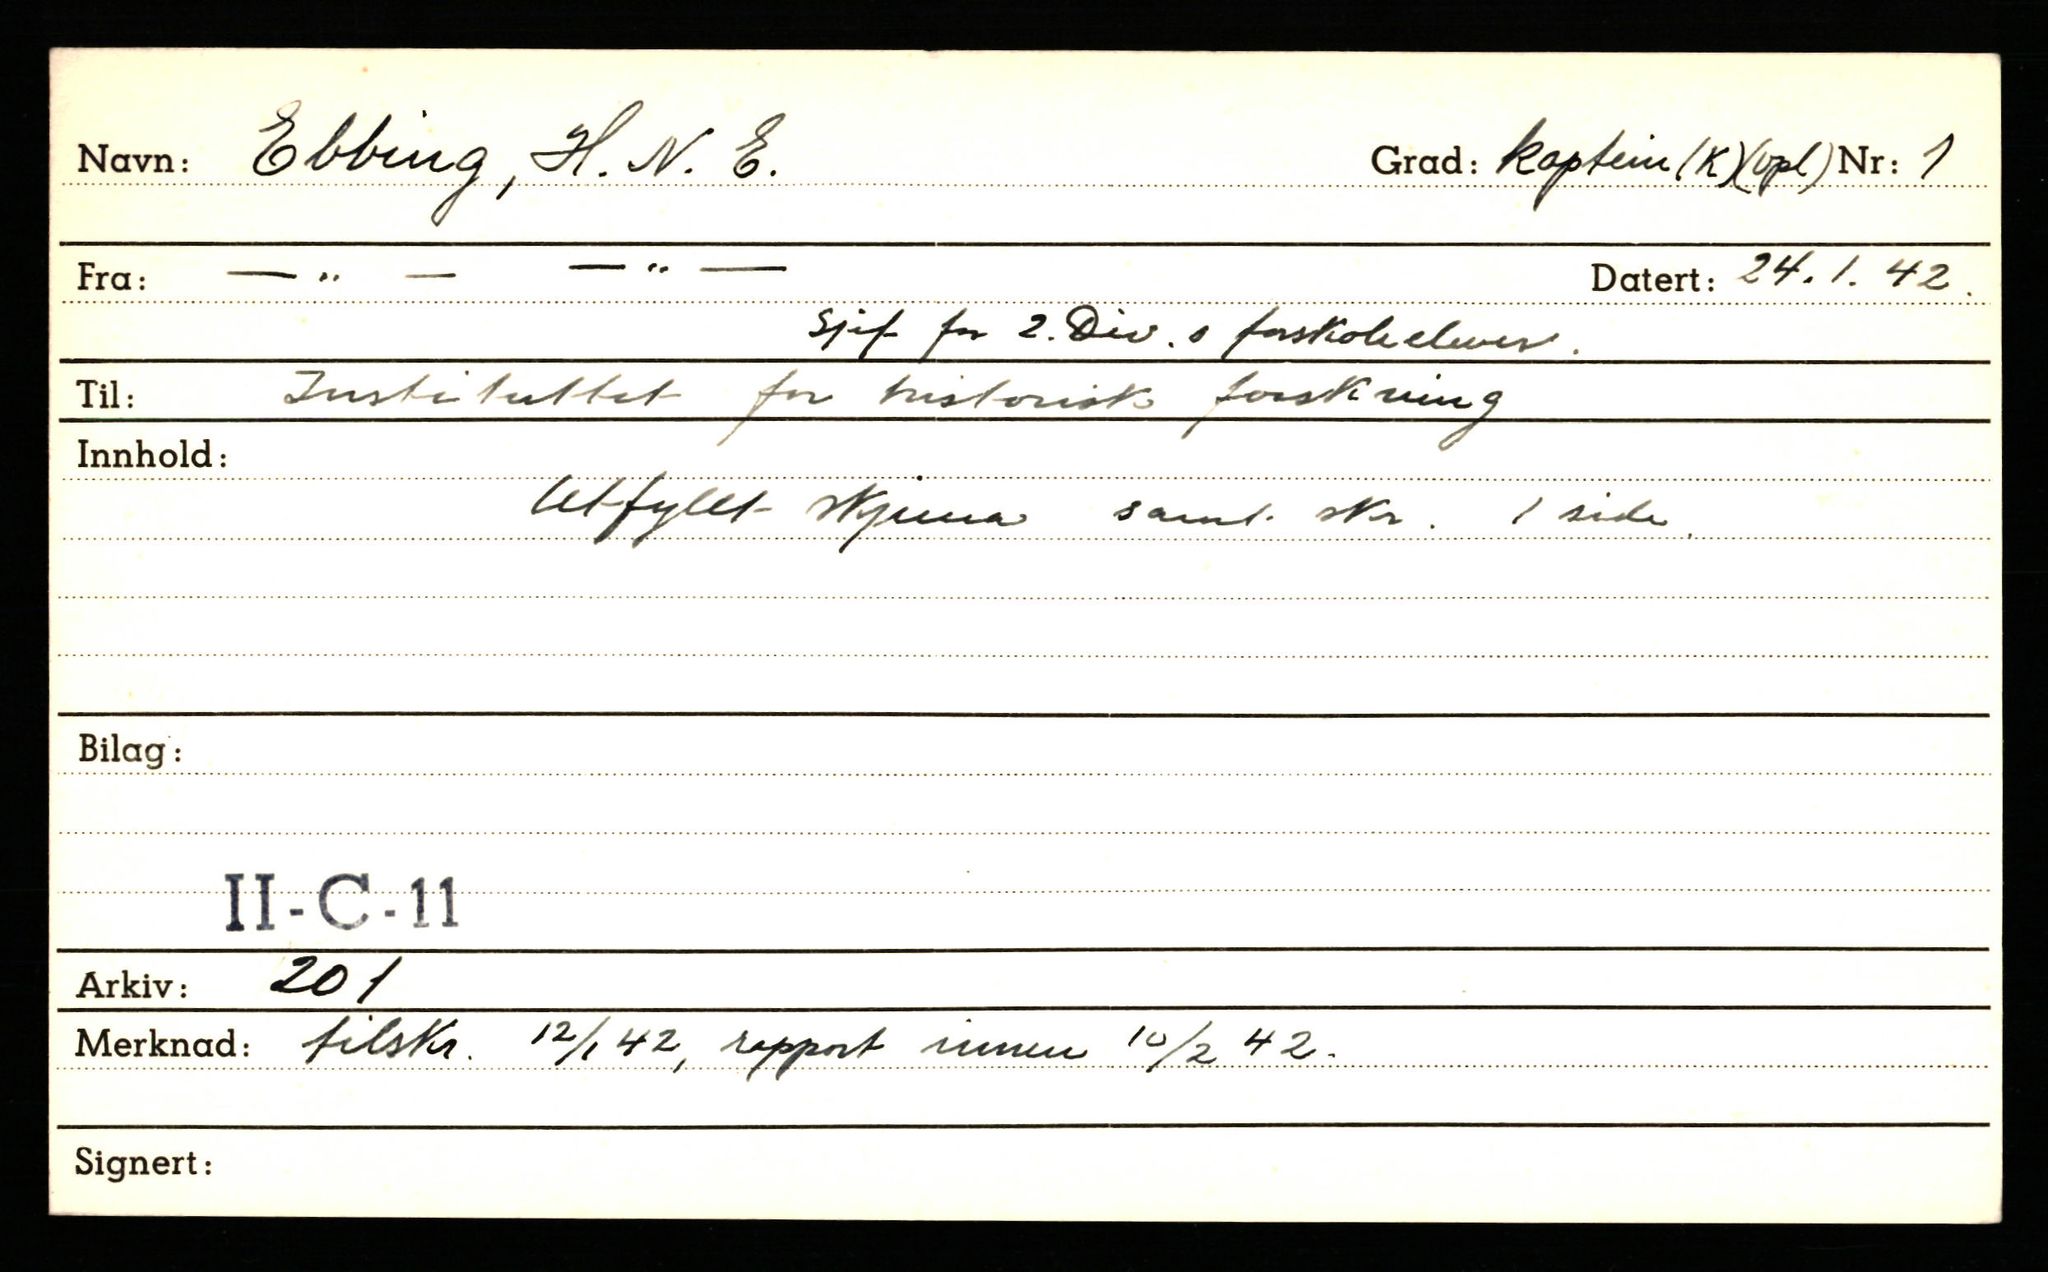 Navn: Ebbing, H. N. E. Grad: kaptein (K)(vpl) Nr: 1
Fra: — " — — " — Datert: 24.1.42.
Sjef for 2. Div.s forskoleelever.
Til: Instituttet for historisk forskning
Innhold:
Utfyllt skjema samt skr. 1 side.
Bilag:
II-C-11
Arkiv: 201
Merknad: tilskr. 12/1 42, rapport innen 10/2 42.
Signert: